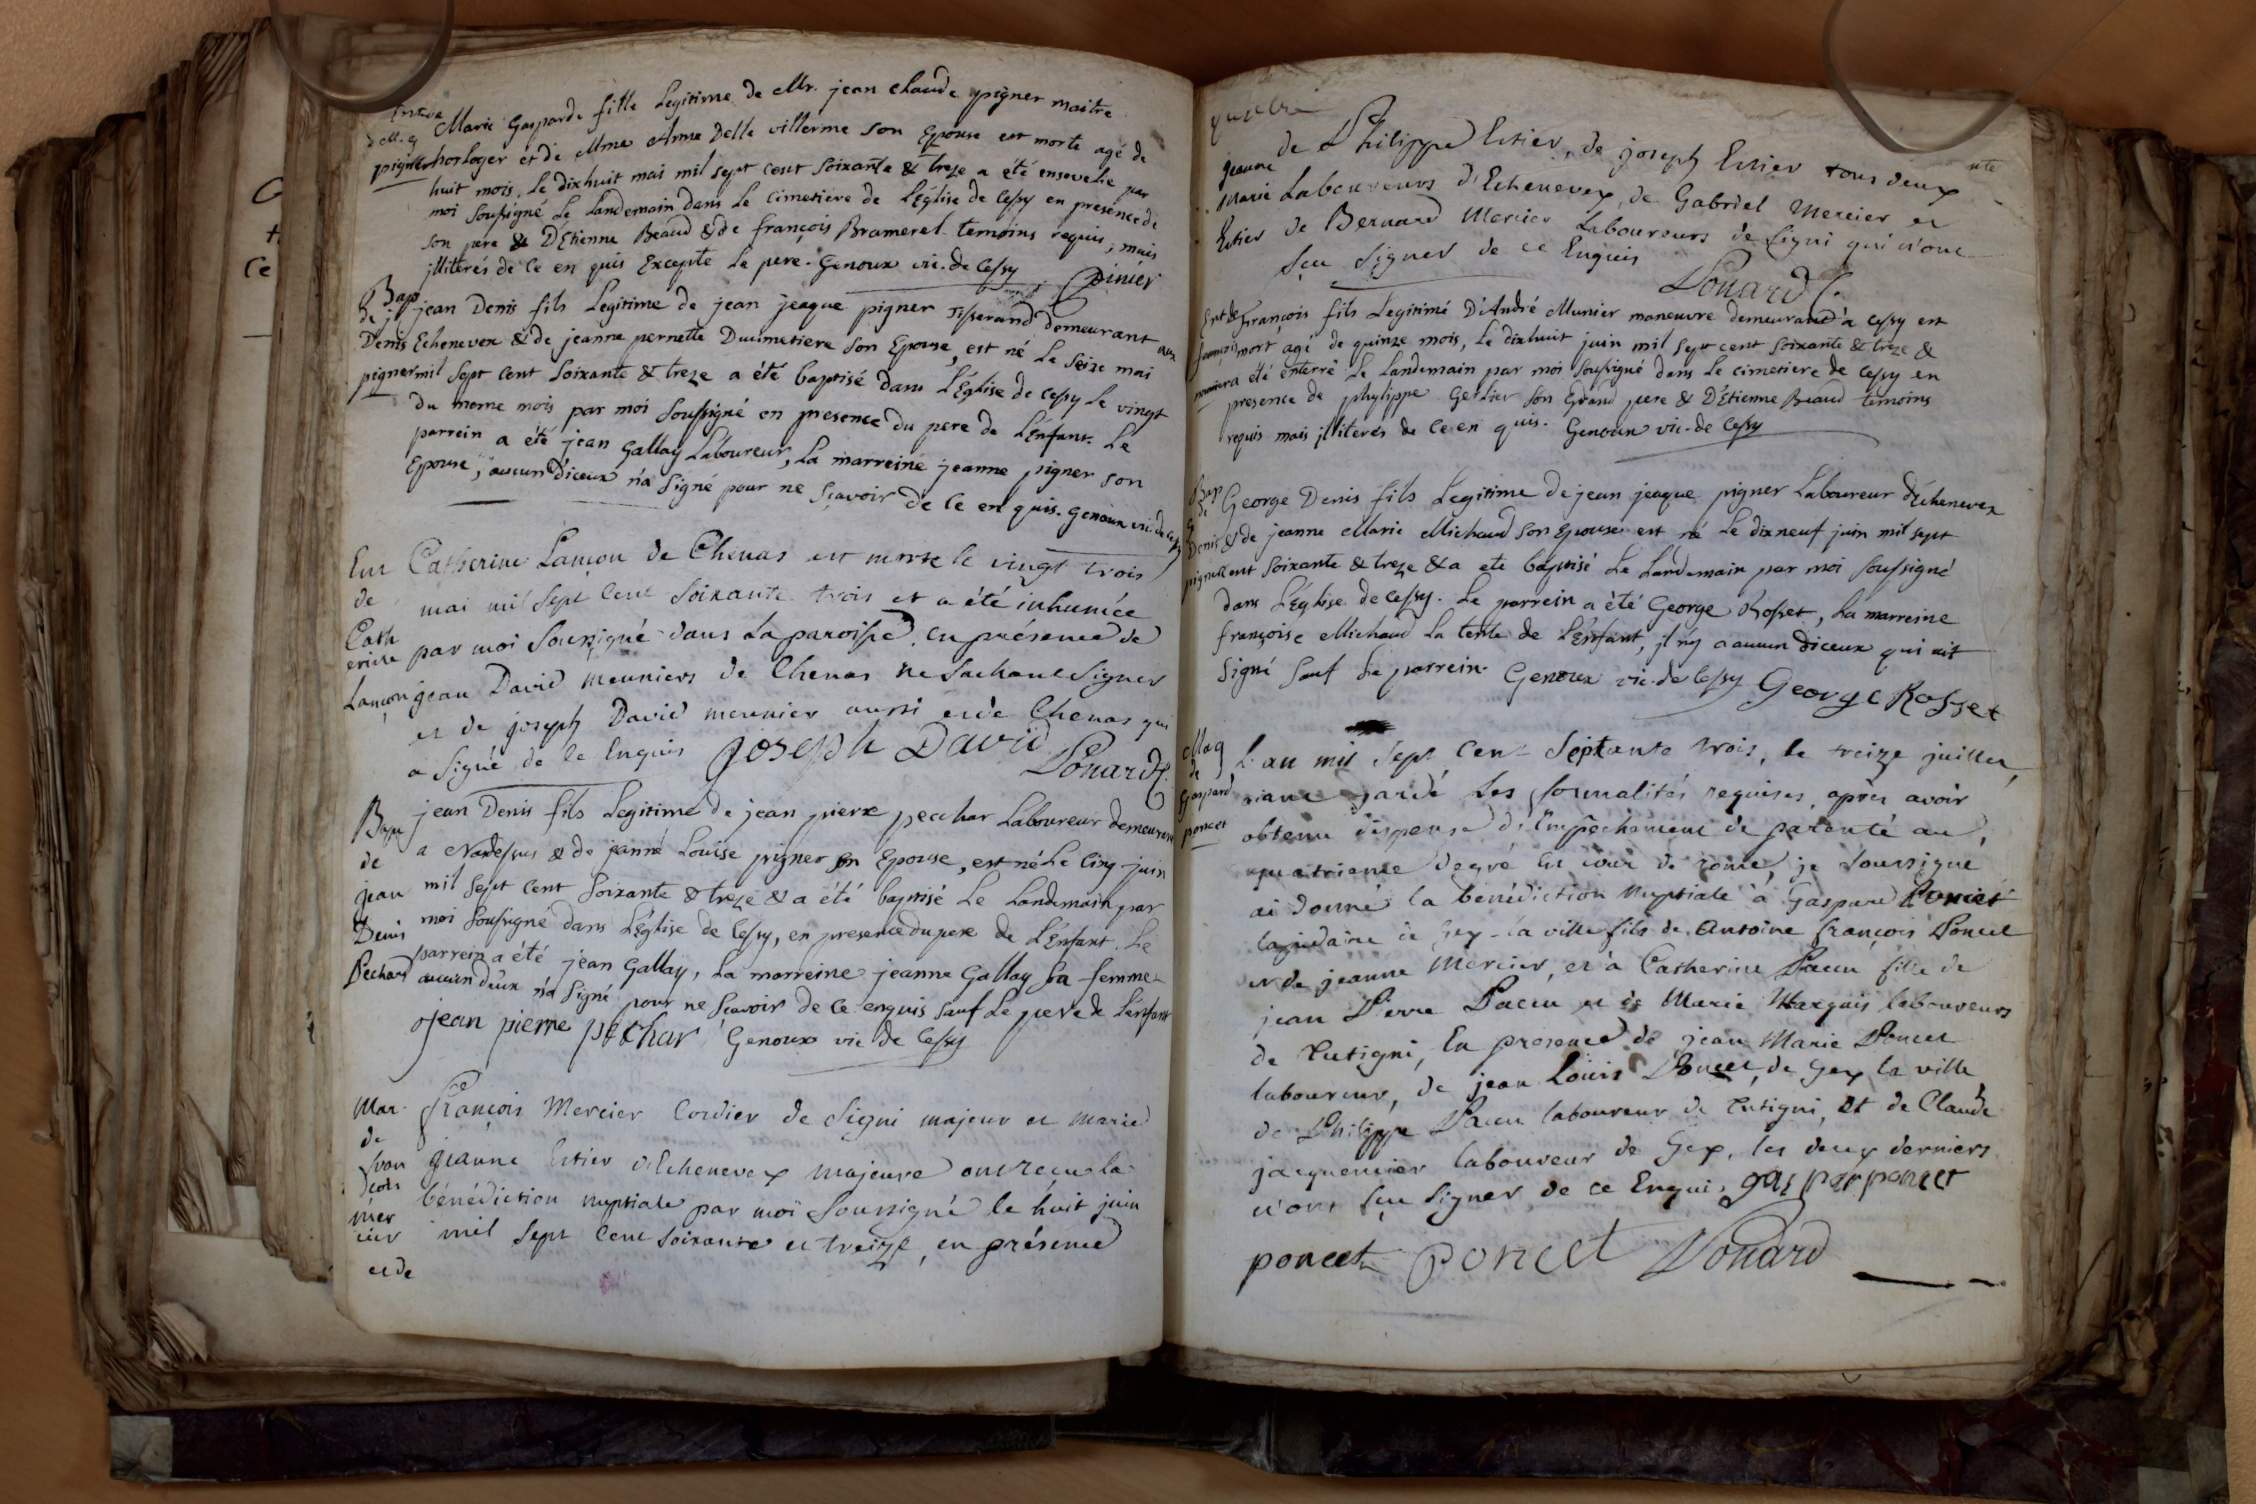 Marie Gasparde fille Legitime de Mr. jean claude pigner maitre
horloger et de Mme Anne Delle villerme son Epouse est morte agé de
huit mois, Le dixhuit mai mil sept cent soixante & treze a été ensevelie par
moi soussigné Le Landemain dans Le cimetiere de L'Église de Cessy en presence de
son pere & D'Etienne Beaud & de françois Bramerel temoins requis, mais
jlliterés de ce en quis Excepté Le pere. Genoux vic. de Cessy Pinier
Bap
de j
Denis
pigner
jean Denis fils Legitime de jean jeaque pigner Tisserand demeurant
Echenevex & de jeanne pernette Ducimetiere son Epouse, est né Le seize mai
mil sept cent soixante & treze a été baptisé dans L'Église de Cessy Le vingt
du meme mois par moi soussigné en presence du pere de L'Enfant. Le
parrein a été jean Gallay Laboureur, La marreine jeanne pigner son
Epouse, aucun d'iceux n'a signé pour ne sçavoir de ce en quis. Genoux vic. de Cessy
Ent
de
Cath
erine
Lançon
Catherine Lançon de Chenas est morte le vingt trois
mai mil sept cent soixante trois et a été inhumée
par moi soussigné dans la paroisse, en présence de
jean David meuniers de Chenas ne sachant signer
et de joseph David meunier aussi de Chenas qui
a signé de ce Enquis joseph David Louard C.
Bap
de
jean
Denis
Pechard
jean Denis fils Legitime de jean pierre pechar Laboureur demeurant
a Naxdessus & de jeanne Louise pigner son Epouse, est né Le cinq juin
mil sept cent soixante & treze & a été baptisé Le Landemain par
moi soussigné dans L'Église de Cessy, en presence du pere de L'Enfant. Le
parrein a été jean Gallay, La marreine jeanne Gallay sa femme
aucun d'eux n'a signé pour ne sçavoir de ce enquis sauf Le pere de L'enfant
jean pierre pechar Genoux vic de Cessy
Mar.
de
fran
çois
mer
cier
et de
François Mercier Cordier de Signi majeur et marie
jeanne Estier d'Echenevex majeure ont reçu la
bénédiction nuptiale par moi soussigné le huit juin
mil sept cent soixante et treize, en présence
jeanne
Marie
Estier
de Philippe Estier, de joseph Estier tous deux
Laboureurs d'Echenevex, de Gabriel Mercier et
de Bernard Mercier Laboureurs de signi qui n'ont
sçu signer de ce Enquis Louard C.
François fils Legitime D'André Munier manœuvre demeurant à Cessy est
mort agé de quinze mois, Le dixhuit juin mil sept cent soixante & treze &
a été enterré Le Landemain par moi soussigné dans Le cimetiere de Cessy en
presence de phylippe Gerlier son Grand pere & D'Etienne Beaud temoins
requis mais jlliterés de ce en quis. Genoux vic. de Cessy
Bap
de
G
Denis
pigner
George Denis fils Legitime de jean jeaque pigner Laboureur d'Echenevex
& de jeanne Marie Michaud son Epouse est né Le dixneuf juin mil sept
cent soixante & treze & a eté baptisé Le Landemain par moi soussigné
dans L'Église de Cessy. Le parrein a été George Rosset, La marreine
françoise Michaud La tente de L'Enfant, jl n'y a aucun diceux qui ait
signé sauf Le parrein. Genoux vic. de Cessy George Rosset
Mag
de
Gaspard
poncet
L'an mil sept cent septante trois, le treize juillet,
aiant gardé les formalités requises, après avoir
obtenu dispense d'Empêchement de parenté au
quatrieme degré en cour de rome, je soussigné
ai donné la bénédiction nuptiale à Gaspard Poncet
de Gex la ville fils de Antoine françois Poncet
et de jeanne Mercier, et à Catherine Pacu fille de
jean Pierre Pacu et de Marie Marquis laboureurs
de Tutigni, En présence de jean Marie Poncet
laboureur, de jean Louis Poncet, de Gex la ville
de Philippe Pacu laboureur de Tutigni, et de Claude
jacquemier laboureur de Gex, les deux derniers
n'ont sçu signer de ce Enquis gaspar poncet
poncet poncet Louard